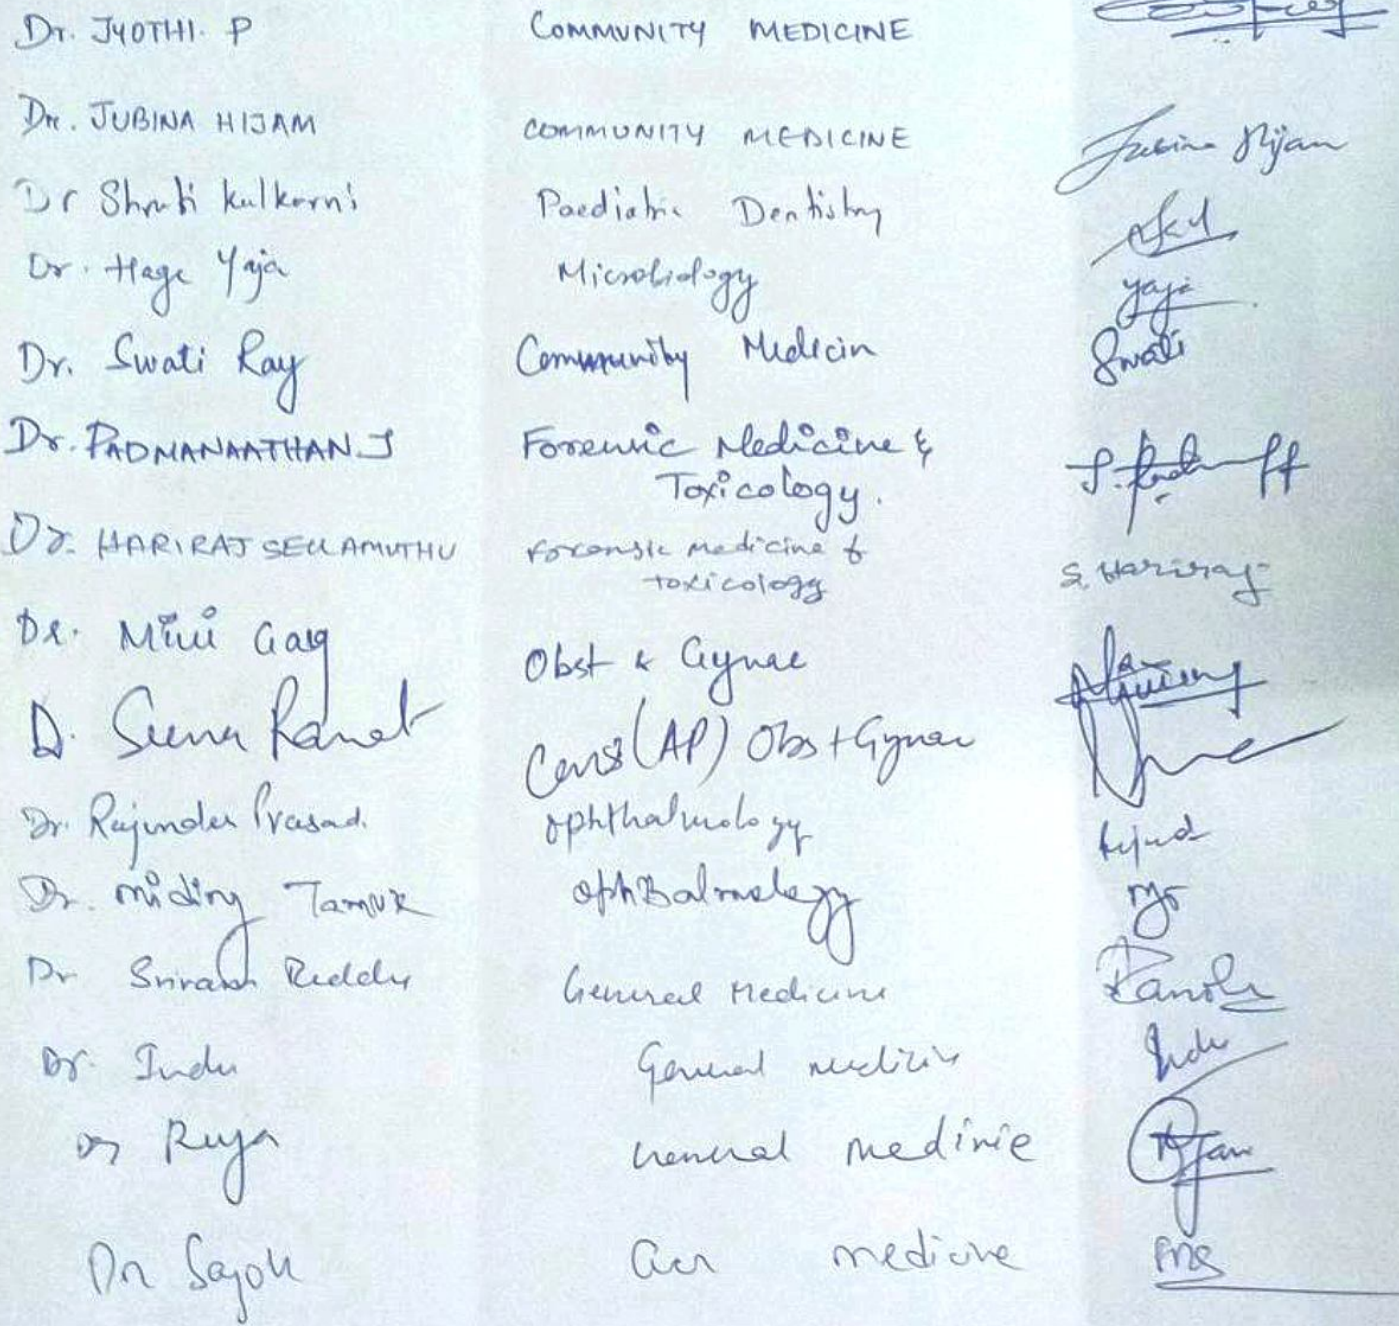 Dr. JYOTHI. P COMMUNITY MEDICINE
Dr. JUBINA HIJAM COMMUNITY MEDICINE Jubina Hijam
Dr Shruti Kulkarni Paediatric Dentistry
Dr. Hage Yaja Microbiology yaja
Dr. Swati Ray Community Medicin Swati
Dr. PADMANAATHAN J Forensic Medicine &
Toxicology.
Dr. HARIRAJ SELLAMUTHU Forensic medicine &
toxicology S. Hariraj
Dr. Mini Garg Obst & Gynae
D. Seena (AP) Obs + Gynae
Dr. Rajinder Prasad. ophthalmology
Dr. Miding Tamuk ophthalmology
Dr Reddy General Medicine
Dr. Indu General medicine Indu
Dr General medinie
Dr medicine